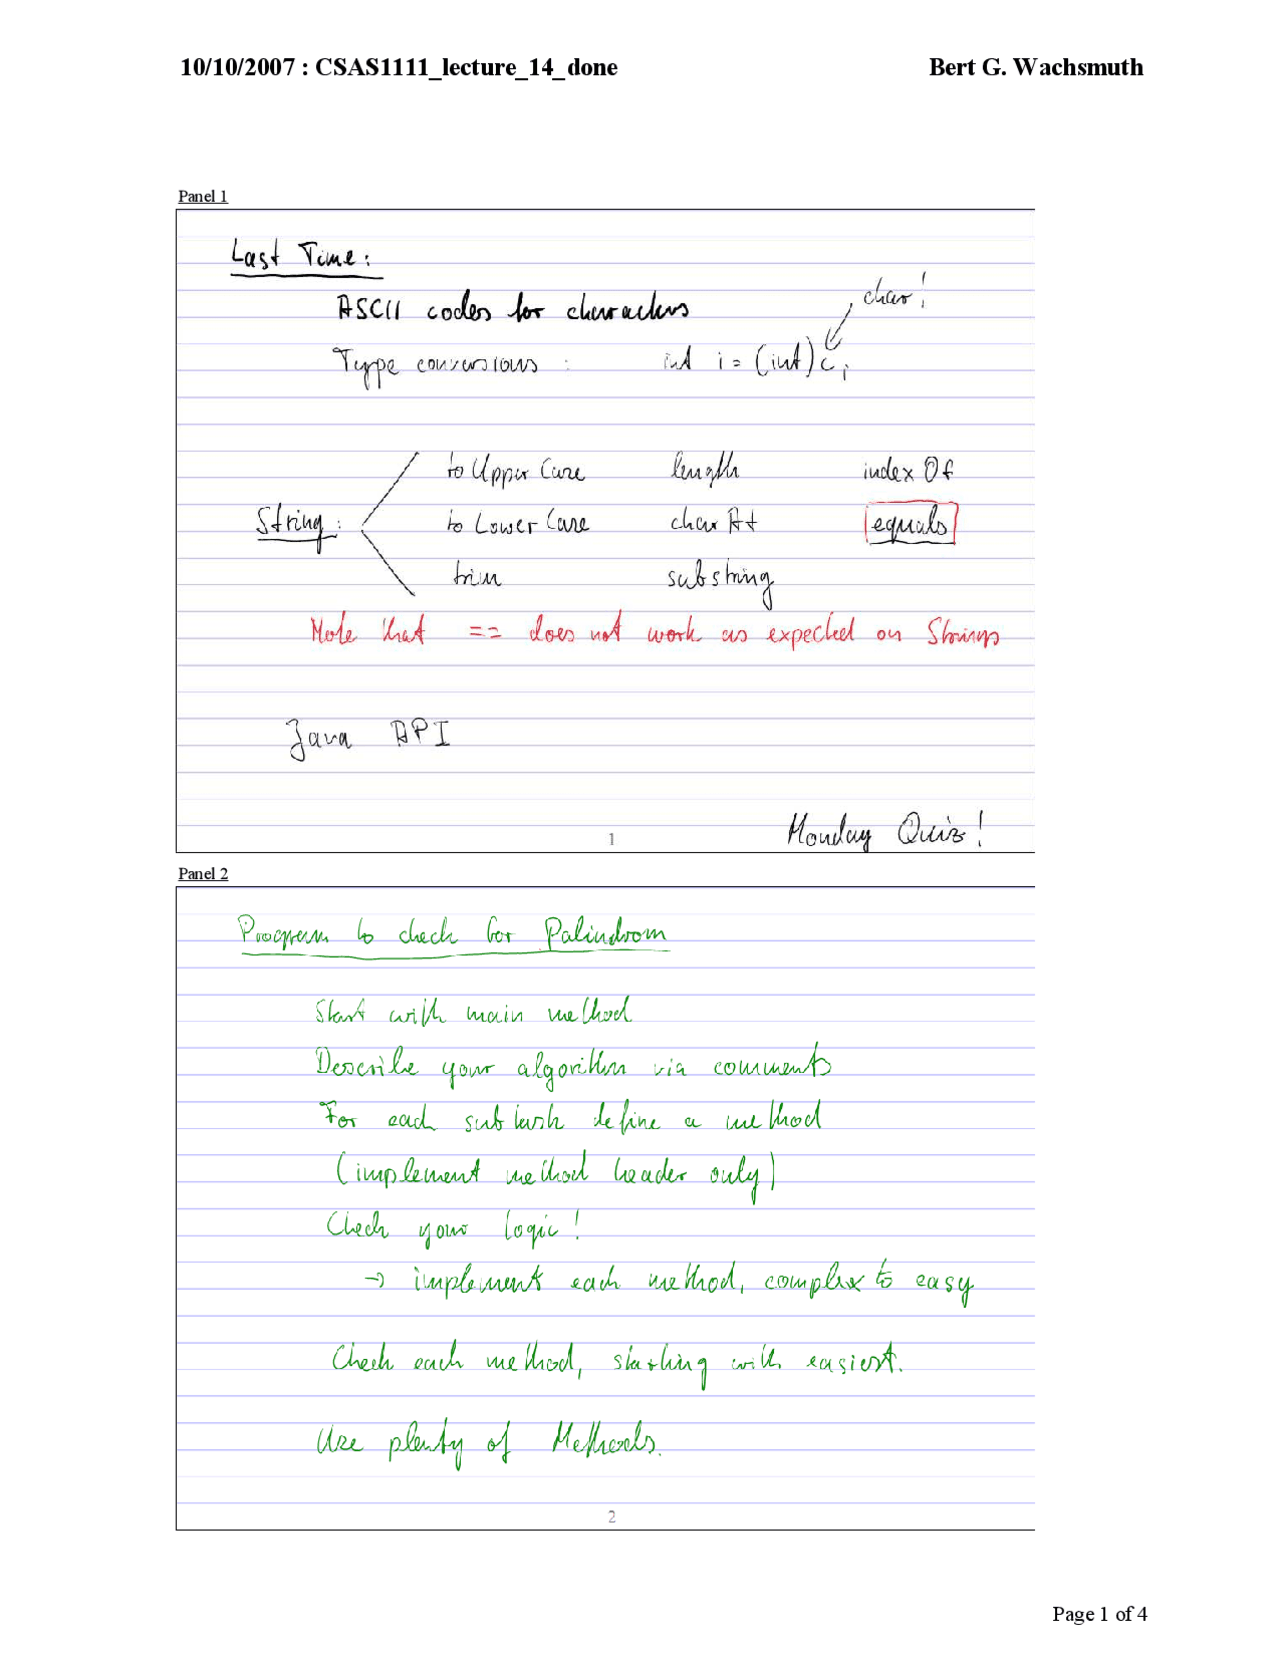 10/10/2007 : CSAS1111_lecture_14_done Bert G. Wachsmuth
Panel 1
Last Time:
char!
ASCII codes for characters
Type conversions : int i = (int)c;
to Upper Case length index Of
String: to Lower Case char At equals
trim substring
Note that == does not work as expected on Strings
Java API
Monday Quiz!
1
Panel 2
Program to check for Palindrom
Start with main method
Describe your algorithm via comments
For each subtask define a method
(implement method header only)
Check your logic!
→ implement each method, complex to easy
Check each method, starting with easiest.
Use plenty of Methods.
2
Page 1 of 4